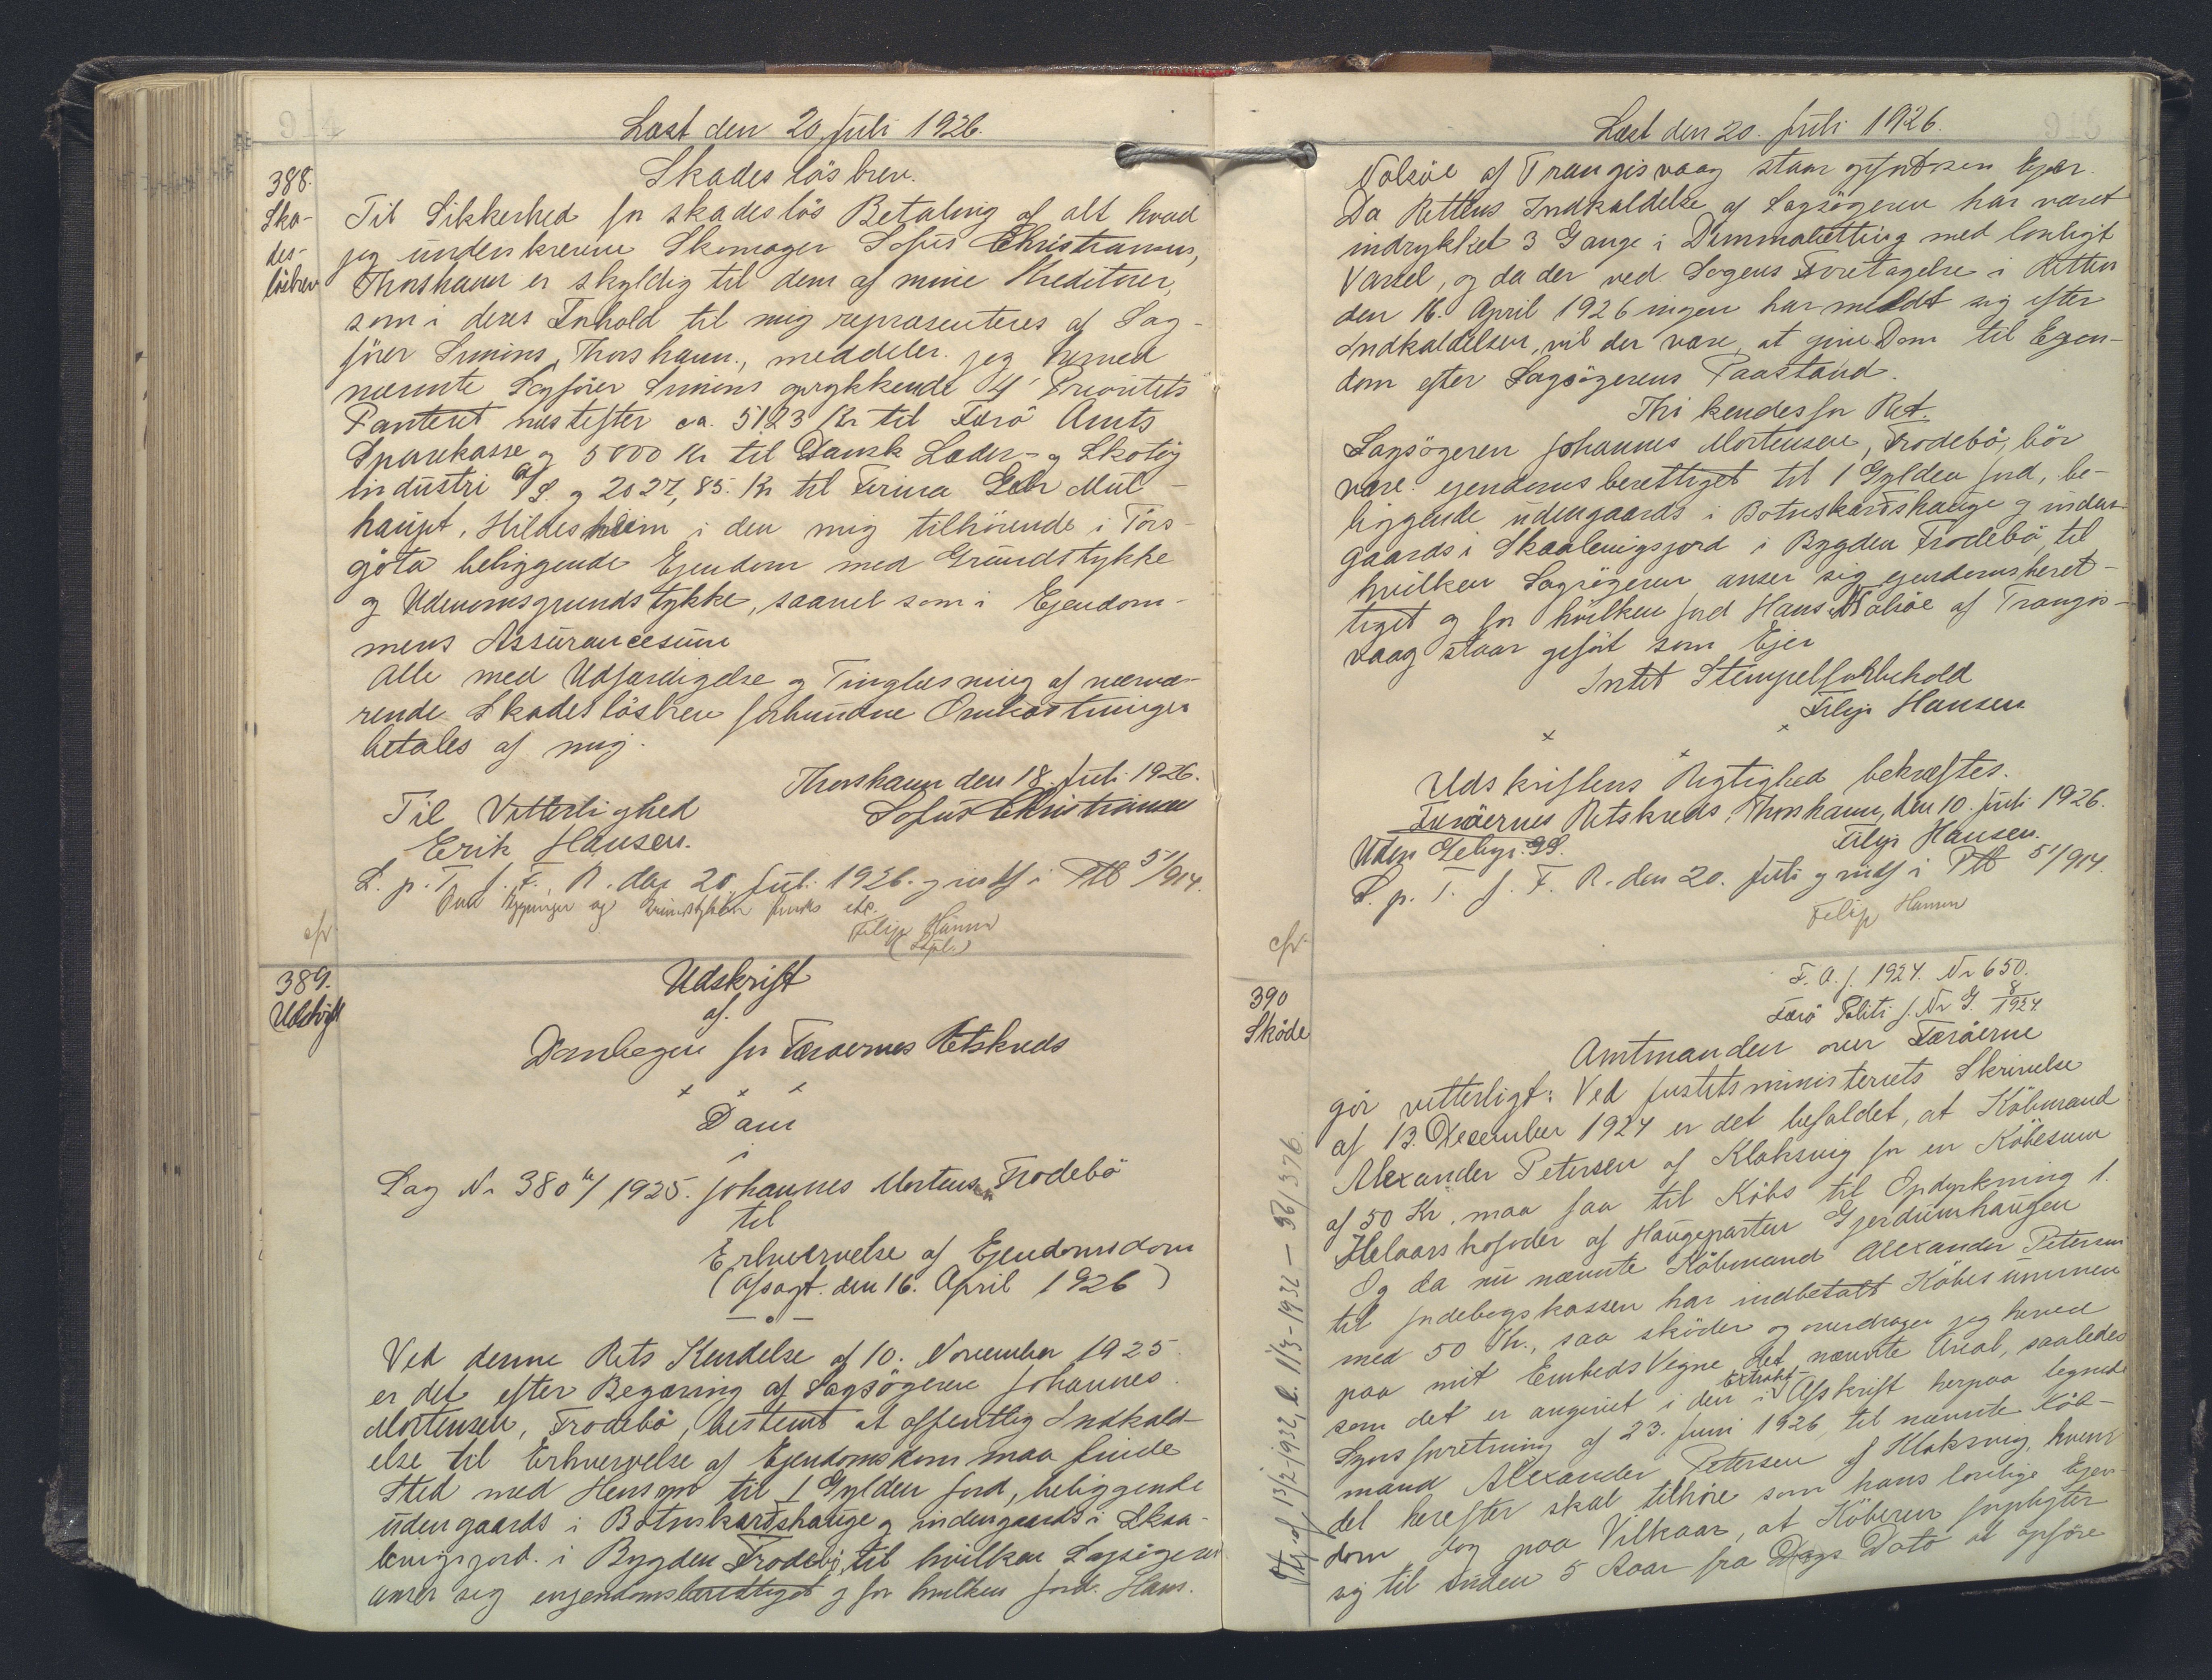 914
Læst den 20. Juli 1926.
388.
Ska-
des-
løsbrev
Skadesløsbrev.
Til Sikkerhed for skadesløs Betaling af alt hvad
jeg underskrevne Skomager Sofus Christiansen,
Thorshavn er skyldig til dem af mine Kreditorer,
som i deres Forhold til mig repræsenteres af Sag-
fører Smins, Thorshavn, meddeler jeg herved
nævnte Sagfører Smins oprykkende 4' Prioritets
Panteret næstefter ca. 5123 Kr til Færø Amts
Sparekasse og 5000 Kr til Dansk Læder- og Skotøj
industri A/S. og 2027,85. Kr til Firma Gebr Mül-
haupt, Hildesheim i den mig tilhørende i Tórs-
gøta beliggende Ejendom med Grundstykke
og Udenomsgrundstykke, saavel som i Ejendom-
mens Assurancesum
Alle med Udfærdigelse og Tinglæsning af nærvæ-
rende Skadesløsbrev forbundne Omkostninger
betales af mig.
Thorshavn den 18. Juli 1926.
Til Vitterlighed
Sofus Christiansen
Erik Hansen.
L. p. T. f. F. R. den 20. Juli 1926. og indf i Ptb 51/914.
Paa Bygninger og Grundstykker findes
Filip Hansen
cfr
389.
Udskrift
Udskrift
af
Dombogen for Færøernes Retskreds
x x x
Dom
i
Sag Nr 380 /1925. Johannes Mortensen Frodebø
til
Erhvervelse af Ejendomsdom
(afsagt. den 16. April 1926)
— o —
Ved denne Rets Kendelse af 10. November 1925
er det efter Begæring af Sagsøgeren Johannes
Mortensen, Frodebø, bestemt at offentlig Indkald-
else til Erhvervelse af Ejendomsdom maa finde
Sted med Hensyn til 1 Gylden Jord, beliggende
udengaards i Botnskarðshauge og indengaards i Skaa-
lenigsjord. i Bygden Frodebø, til hvilken Sagsøgeren
anser sig enjendomsberettiget og for hvilken Jord. Hans.
915
Læst den 20. Juli 1926.
Nolsøe af Trangisvaag staar opført som Ejer.
Da Rettens Indkaldelse af Sagsøgeren har været
indrykket 3 Gange i Dimmalætting med lovligt
Varsel, og da der ved Sagens Foretagelse i Retten
den 16. April 1926 ingen har meldt sig efter
Indkaldelsen, vil der være, at give Dom til Ejen-
dom efter Sagsøgerens Paastand.
Thi kendes for Ret.
Sagsøgeren Johannes Mortensen, Frodebø, bør
være ejendomsberettiget til 1 Gylden Jord, be-
liggende udengaards i Botnskarðshauge og inden-
gaards i Skaalenigsjord i Bygden Frodebø, til
hvilken Sagsøgeren anser sig ejendomsberet-
tiget og for hvilken Jord Hans Nolsøe af Trangis-
vaag staar opført som Ejer
Intet Stempelforbehold
Filip Hansen
x x x
Udskriftens Rigtighed bekræftes.
Færøernes Retskreds, Thorshavn, den 10. Juli 1926.
Uden Gebyr.
Filip Hansen.
L. p. T. f. F. R. den 20. Juli og indf i Ptb 51/914.
Filip Hansen
cfr.
390
Skøde
F. A. J. 1924. Nr 650.
Færø Politi J. Nr G. 8/1924
Amtmanden over Færøerne
gør vitterligt: Ved Justitsministeriets Skrivelse
af 13. December 1924 er det befaldet, at Købmand
Alexander Petersen af Klaksvig for en Købesum
af 50 Kr. maa faa til Købs til Opdyrkning 1.
Helaars kofoder af Haugeparten Gjerdumhaugen
Og da nu nævnte Købmand Alexander Petersen
til Jordebogskassen har indbetalt Købesummen
med 50 Kr., saa skøder og overdrager jeg herved
paa mit Embeds Vegne det nævnte Areal, saaledes
som det er angivet i den i Extrakt-Afskrift herpaa tegnede
Synsforretning af 23. Juni 1926, til nævnte Køb-
mand Alexander Petersen af Klaksvig, hvem
det herefter skal tilhøre som hans lovlige Ejen-
dom dog paa Vilkaar, at Køberen forpligter
sig til inden 5 Aar fra Dags Dato at opføre
af 13/2-1932, l. 1/3-1932 — 56/376.